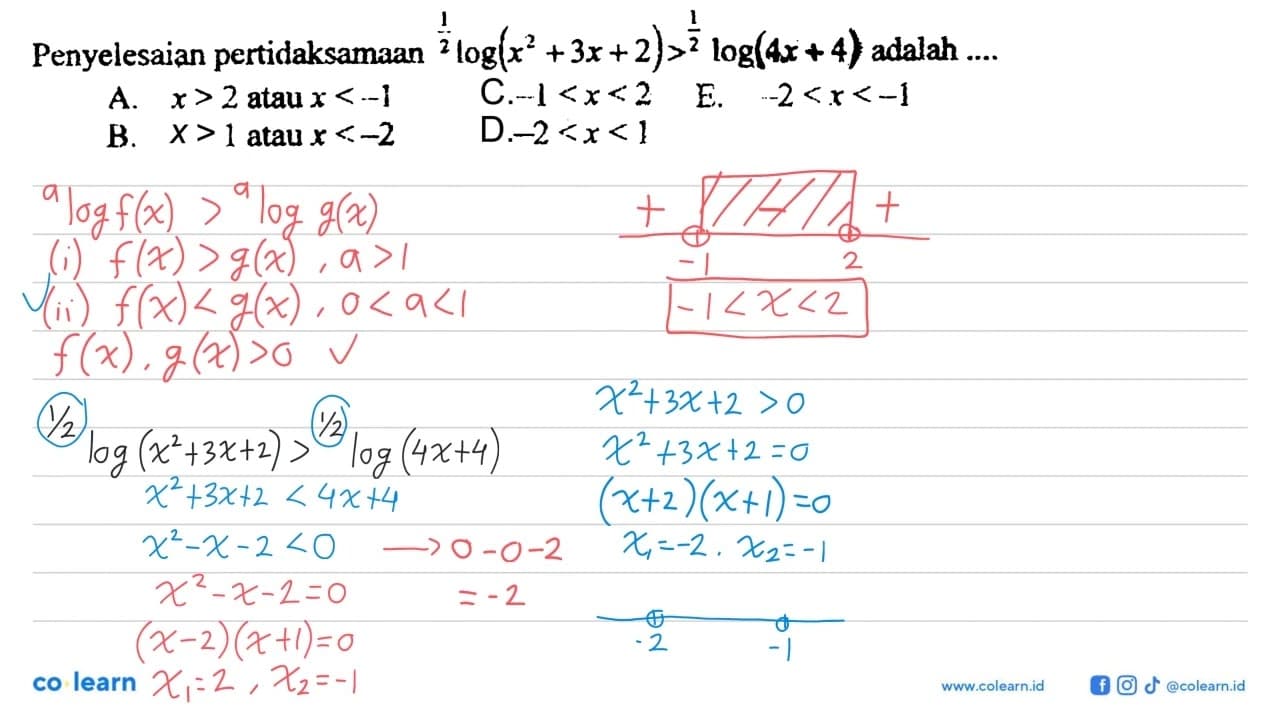 Penyelesaian pertidaksamaan 1/2 log(x² + 3x + 2) > 1/2 log(4x + 4) adalah ....
A. x > 2 atau x < -1 C. -1 < x < 2 E. -2 < x < -1
B. X > 1 atau x < -2 D. -2 < x < 1
a log f(x) > a log g(x)
(i) f(x) > g(x) , a > 1
✓(ii) f(x) < g(x) , 0 < a < 1
f(x) , g(x) > 0 ✓
+ +
-1 2
-1 < x < 2
1/2 log (x²+3x+2) > 1/2 log (4x+4)
x²+3x+2 < 4x+4
x²-x-2 < 0 → 0-0-2
x²-x-2=0 = -2
(x-2)(x+1)=0
x₁=2 , x₂=-1
x²+3x+2 > 0
x²+3x+2 = 0
(x+2)(x+1)=0
x₁=-2 . x₂=-1
-2 -1
co learn
www.colearn.id @colearn.id